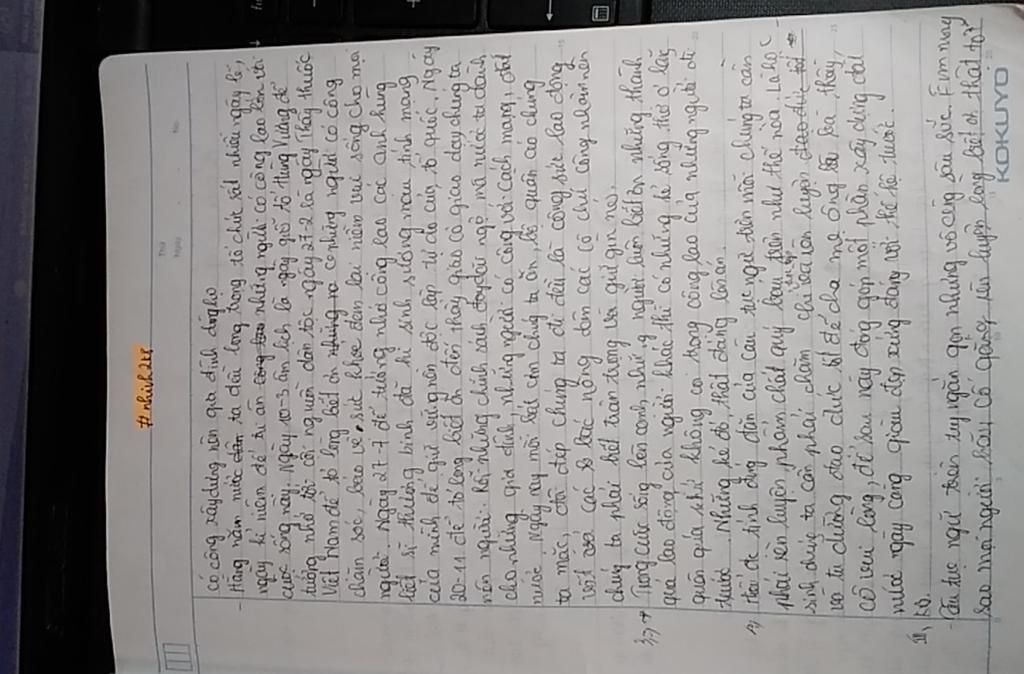 #nhinh244
Thứ
Ngày
No.
có công xây dựng nên gia đình, dòng họ
- Hàng năm nước ta đều long trọng tổ chức rất nhiều ngày lễ,
ngày kỉ niệm để tri ân những người có công lao lớn với
cuộc sống này. Ngày 10-3 âm lịch là ngày giỗ tổ Hùng Vương để
tưởng nhớ tới cội nguồn dân tộc, ngày 27-2 là ngày Thầy thuốc
Việt Nam để tỏ lòng biết ơn những người có công
chăm sóc, bảo vệ sức khỏe đem lại niềm vui sống cho mọi
người. Ngày 27-7 để tưởng nhớ công lao các anh hùng
liệt sĩ thương binh đã hi sinh xương máu tính mạng
của mình để giữ vững nền độc lập tự do của tổ quốc. Ngày
20-11 để tỏ lòng biết ơn đến thầy giáo cô giáo dạy chúng ta
nên người. Rồi những chính sách đãi ngộ mà nước ta dành
cho những gia đình, những người có công với cách mạng, đất
nước. Ngày nay mỗi bát cơm chúng ta ăn, bộ quần áo chúng
ta mặc, đôi dép chúng ta đi đều là công sức lao động
vất vả các bác nông dân các cô chú công nhân nên
chúng ta phải biết trân trọng và giữ gìn nó.
3, + Trong cuộc sống bên cạnh những người luôn biết ơn những thành
quả lao động của người khác thì có những kẻ sống thờ ơ lãng
quên quá khứ không coi trọng công lao của những người đi
trước. Những kẻ đó, thật đáng lên án.
Thấy được tính đúng đắn của câu tục ngữ trên mỗi chúng ta cần
phải rèn luyện phẩm chất quý báu trên như thế nào. Là học
sinh chúng ta cần phải chăm chỉ học tập rèn luyện
và tu dưỡng đạo đức tốt để cha mẹ ông bà, thầy
cô vui lòng, để sau này đóng góp một phần xây dựng đất
nước ngày càng giàu đẹp xứng đáng với thế hệ trước.
III, KB.
- Câu tục ngữ trên tuy ngắn gọn nhưng vô cùng sâu sắc. Em mong
sao mọi người hãy cố gắng rèn luyện lòng biết ơn thật tốt
KOKUYO